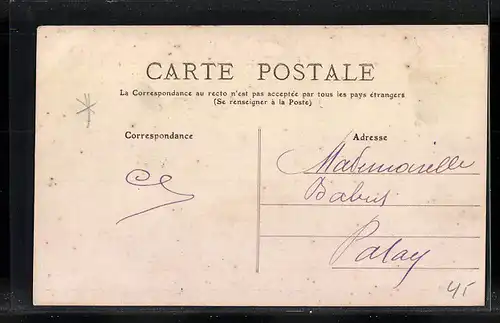 CARTE POSTALE
La Correspondance au recto n'est pas acceptée par tous les pays étrangers
(Se renseigner à la Poste)
Correspondance
Adresse
Mademoiselle
Patay
45